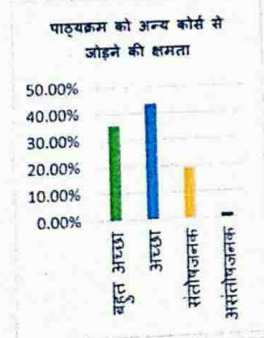 पाठ्यक्रम को अन्य कोर्स से
जोड़ने की क्षमता
50.00%
40.00%
30.00%
20.00%
10.00%
0.00%
बहुत अच्छा
अच्छा
संतोषजनक
असंतोषजनक